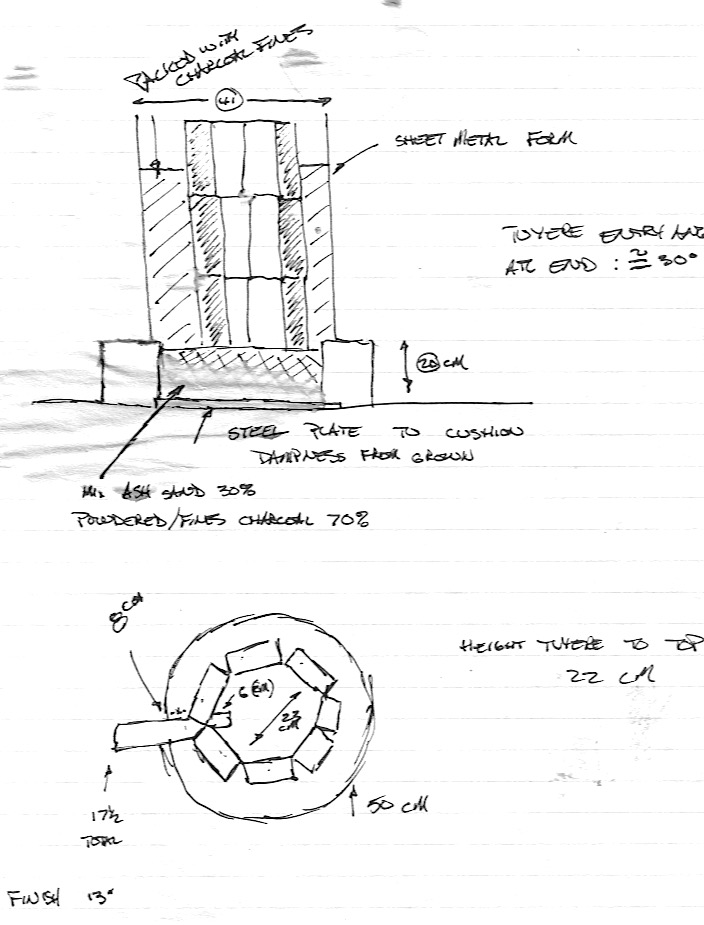 PACKED WITH
CHARCOAL FINES
41
SHEET METAL FORM
TUYERE ENTRY ANG
AT END : ≅ 30°
20 CM
STEEL PLATE TO CUSHION
DAMPNESS FROM GROWN
MIX ASH SAND 30%
POWDERED/FINES CHARCOAL 70%
8 CM
HEIGHT TUYERE TO TOP
22 CM
6 (CM)
22
CM
50 CM
17½
TOTAL
FINISH 13"